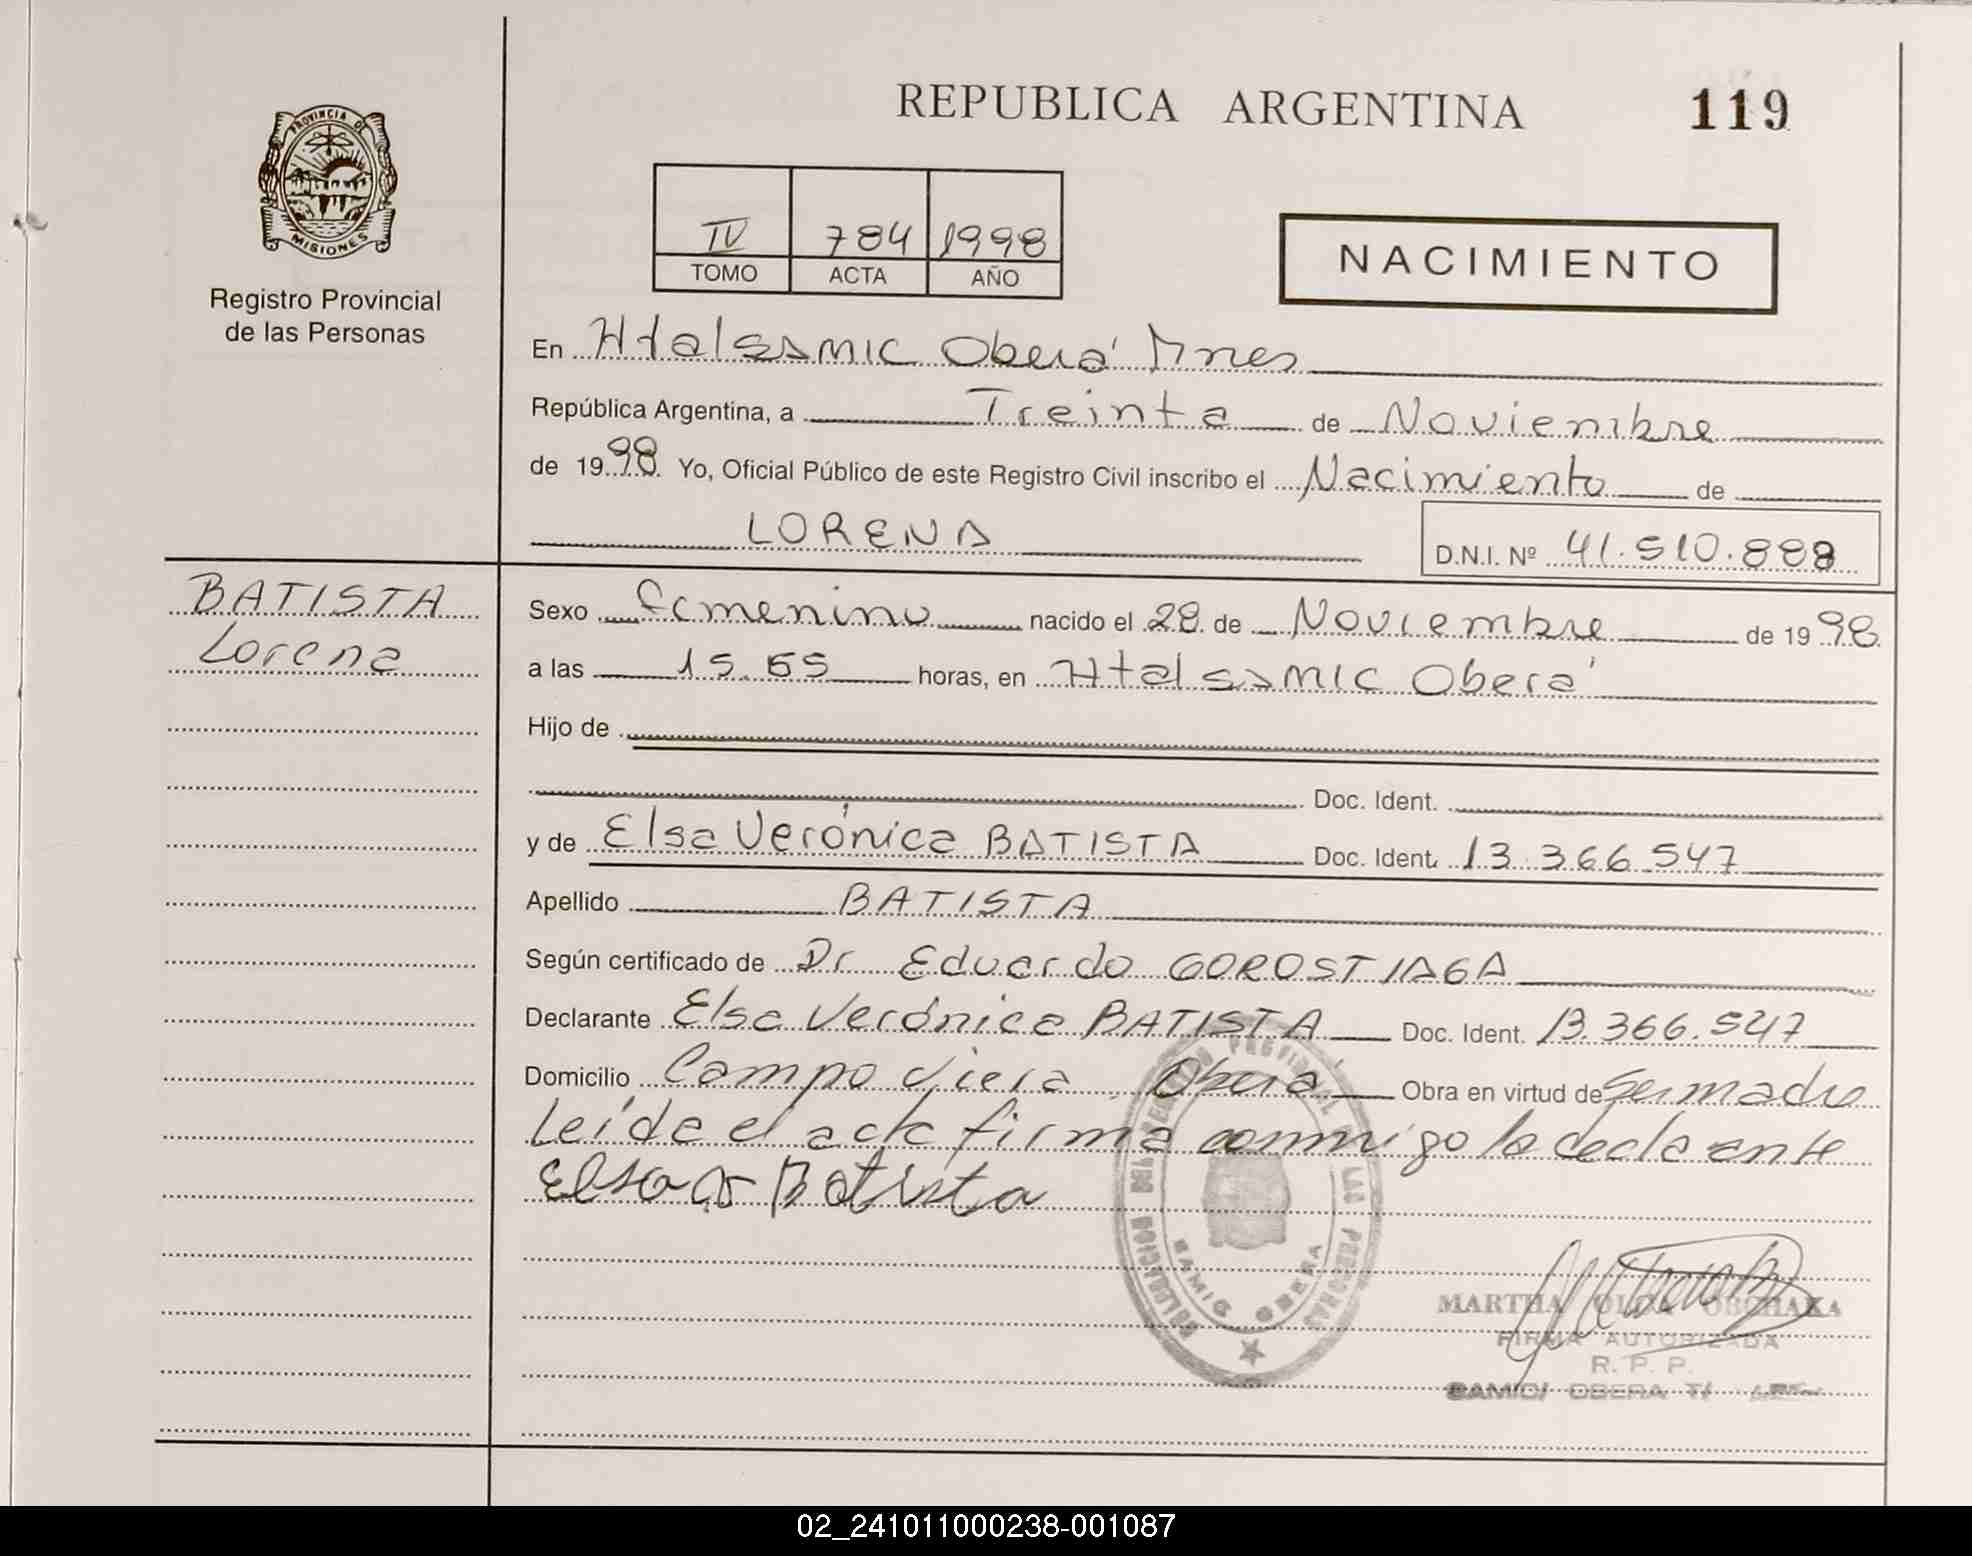 REPUBLICA ARGENTINA 119
PROVINCIA DE
MISIONES
Registro Provincial
de las Personas
IV 784 1998
TOMO ACTA AÑO
NACIMIENTO
En Htal SAMIC Oberá Mnes
República Argentina, a Treinta de Noviembre
de 1998. Yo, Oficial Público de este Registro Civil inscribo el Nacimiento de
LORENA D.N.I. Nº 41.510.888
BATISTA
Lorena
Sexo femenino nacido el 28 de Noviembre de 1998
a las 15.55 horas, en Htal SAMIC Oberá
Hijo de
Doc. Ident.
y de Elsa Verónica BATISTA Doc. Ident. 13.366.547
Apellido BATISTA
Según certificado de Dr Eduardo GOROSTIAGA
Declarante Elsa Verónica BATISTA Doc. Ident. 13.366.547
Domicilio Campo Viera Oberá Obra en virtud de Ser madre
Leída el acta firma conmigo la declarante
Elsa Batista
DELEGACION DEL REGISTRO PROVINCIAL DE LAS PERSONAS
SAMIC OBERA
MARTHA OLGA OBCHAKA
FIRMA AUTORIZADA
R. P. P.
SAMIC/ OBERA T/
02_241011000238-001087